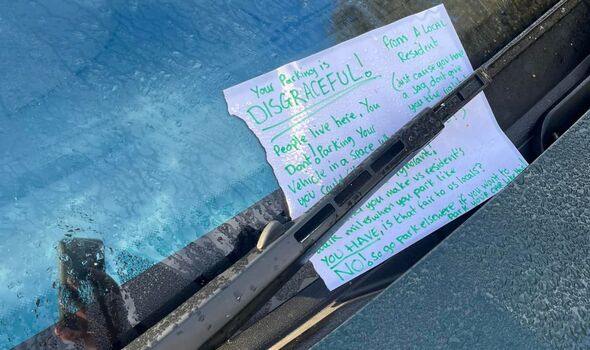 Your Parking is
DISGRACEFUL!
People live here, You
Dont! Parking Your
Vehicle in a space
you
you make us resident's
miles when you park like
YOU HAVE, is that fair to us locals?
NO! so go park elsewhere if you want to
From A LOCAL
Resident
(Just cause you have
a Jag dont give
you the